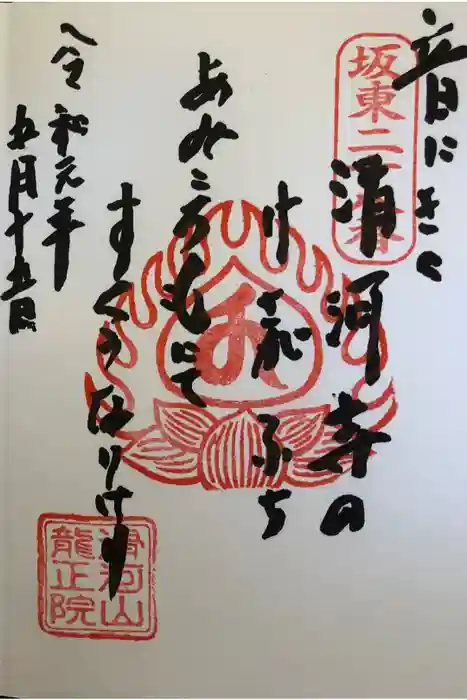 坂東二十八番
音にきく
滑河寺の
ふち
あみころもにて
すくうなりけり
令和元年
五月十五日
滑河山
龍正院